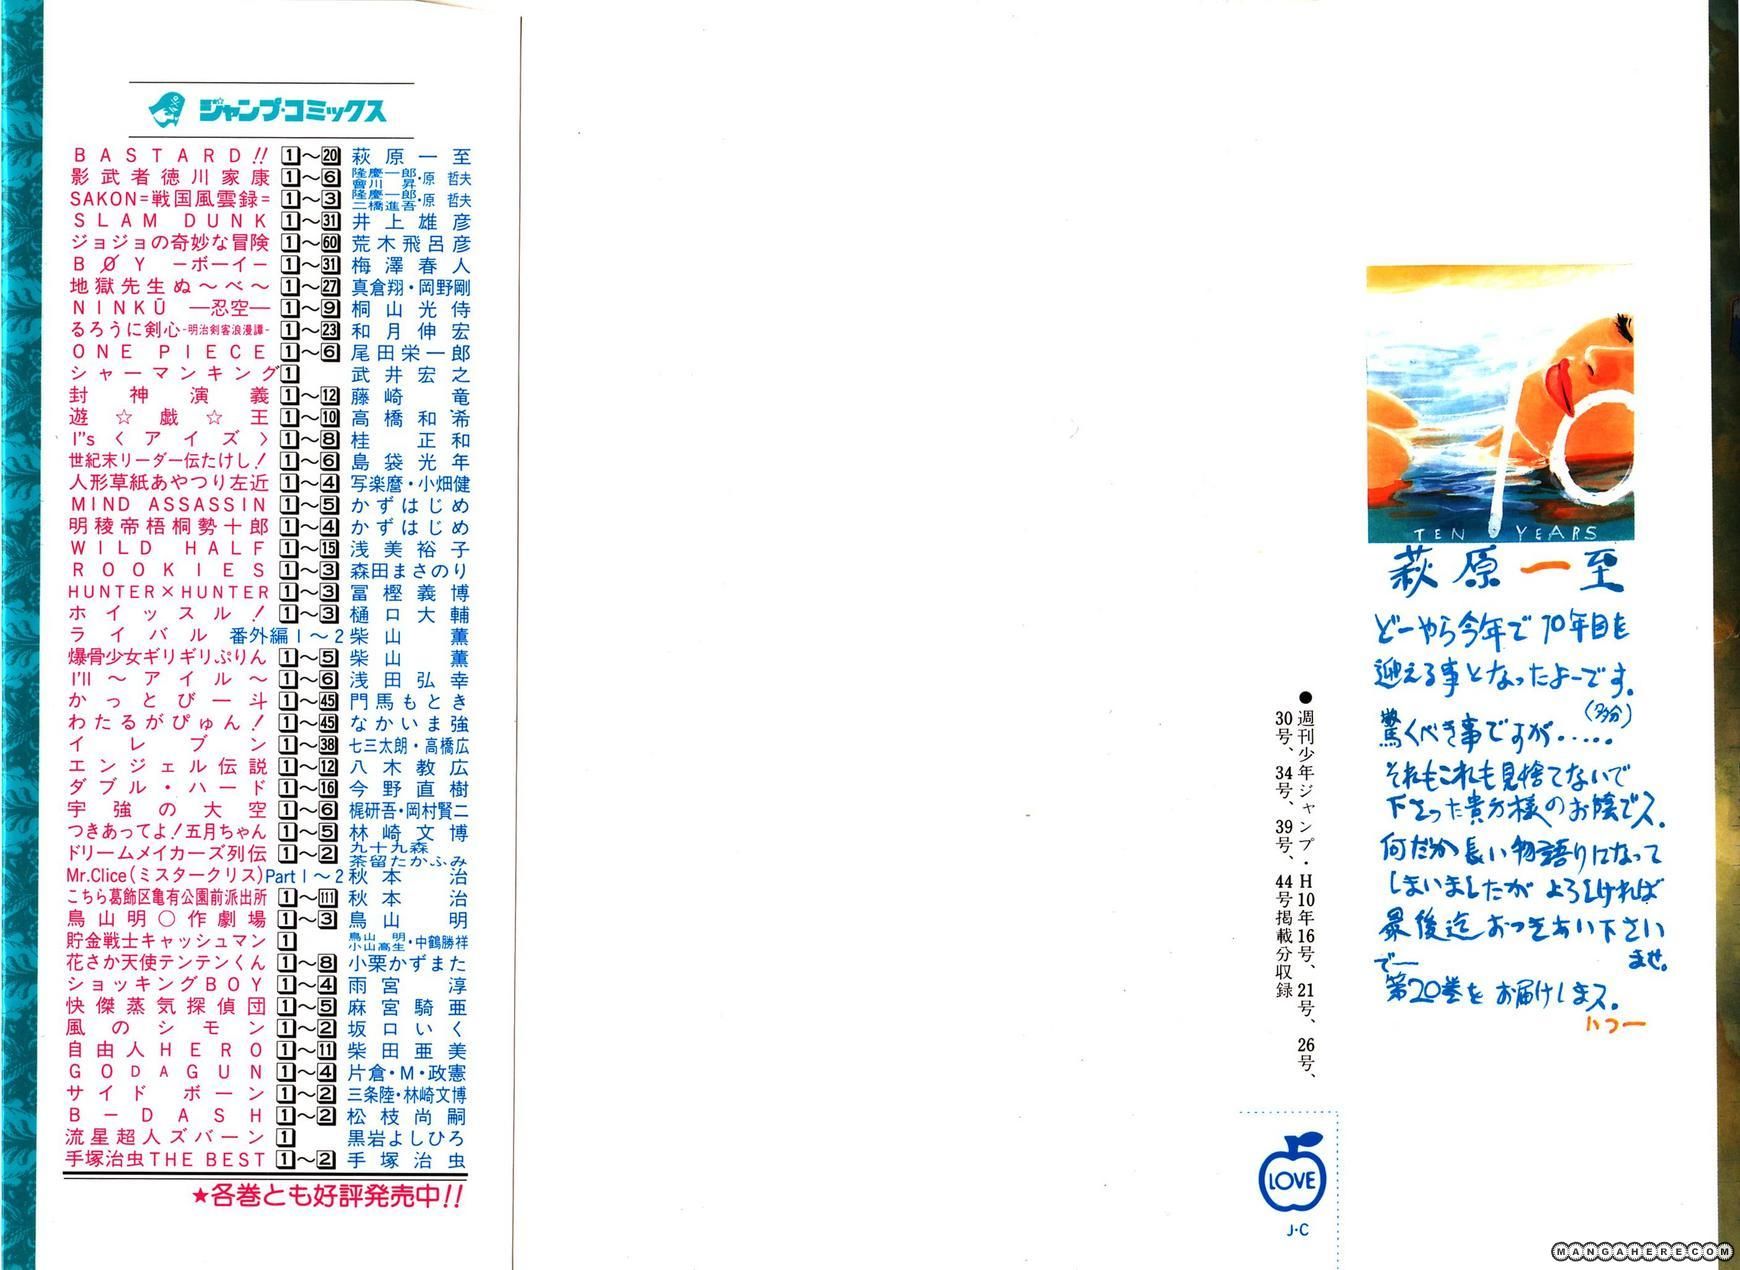 ジャンプ・コミックス
BASTARD!! 1～20 萩原一至
影武者徳川家康 1～6 隆慶一郎 會川昇・原哲夫
SAKON=戦国風雲録= 1～3 隆慶一郎 二橋進吾・原哲夫
SLAM DUNK 1～31 井上雄彦
ジョジョの奇妙な冒険 1～60 荒木飛呂彦
BØY －ボーイ－ 1～31 梅澤春人
地獄先生ぬ～べ～ 1～27 真倉翔・岡野剛
NINKŪ ―忍空― 1～9 桐山光侍
るろうに剣心-明治剣客浪漫譚- 1～23 和月伸宏
ONE PIECE 1～6 尾田栄一郎
シャーマンキング 1 武井宏之
封神演義 1～12 藤崎竜
遊☆戯☆王 1～10 高橋和希
I"s〈アイズ〉 1～8 桂正和
世紀末リーダー伝たけし! 1～6 島袋光年
人形草紙あやつり左近 1～4 写楽麿・小畑健
MIND ASSASSIN 1～5 かずはじめ
明稜帝梧桐勢十郎 1～4 かずはじめ
WILD HALF 1～15 浅美裕子
ROOKIES 1～3 森田まさのり
HUNTER×HUNTER 1～3 冨樫義博
ホイッスル! 1～3 樋口大輔
ライバル 番外編1～2 柴山薫
爆骨少女ギリギリぷりん 1～5 柴山薫
I'll ～アイル～ 1～6 浅田弘幸
かっとび一斗 1～45 門馬もとき
わたるがぴゅん! 1～45 なかいま強
イレブン 1～38 七三太朗・高橋広
エンジェル伝説 1～12 八木教広
ダブル・ハード 1～16 今野直樹
宇強の大空 1～6 梶研吾・岡村賢二
つきあってよ!五月ちゃん 1～5 林崎文博
ドリームメイカーズ列伝 1～2 九十九森 茶留たかふみ
Mr.Clice(ミスタークリス)Part1～2 秋本治
こちら葛飾区亀有公園前派出所 1～111 秋本治
鳥山明○作劇場 1～3 鳥山明
貯金戦士キャッシュマン 1 鳥山明 小山高生・中鶴勝祥
花さか天使テンテンくん 1～8 小栗かずまた
ショッキングBOY 1～4 雨宮淳
快傑蒸気探偵団 1～5 麻宮騎亜
風のシモン 1～2 坂口いく
自由人HERO 1～11 柴田亜美
GODAGUN 1～4 片倉・M・政憲
サイドボーン 1～2 三条陸・林崎文博
B－DASH 1～2 松枝尚嗣
流星超人ズバーン 1 黒岩よしひろ
手塚治虫THE BEST 1～2 手塚治虫
★各巻とも好評発売中!!
●週刊少年ジャンプ・H10年16号、21号、26号、
30号、34号、39号、44号掲載分収録
LOVE
J・C
10
TEN YEARS
萩原一至
どーやら今年で10年目を
迎える事となったよーです。
(多分)
驚くべき事ですが‥‥‥
それもこれも見捨てないで
下さった貴方様のお陰でス。
何だか長い物語りになって
しまいましたがよろしければ
最後迄おつきあい下さい
ませ。
でー
第20巻をお届けしまス。
ハつー
MANGAHERE.COM